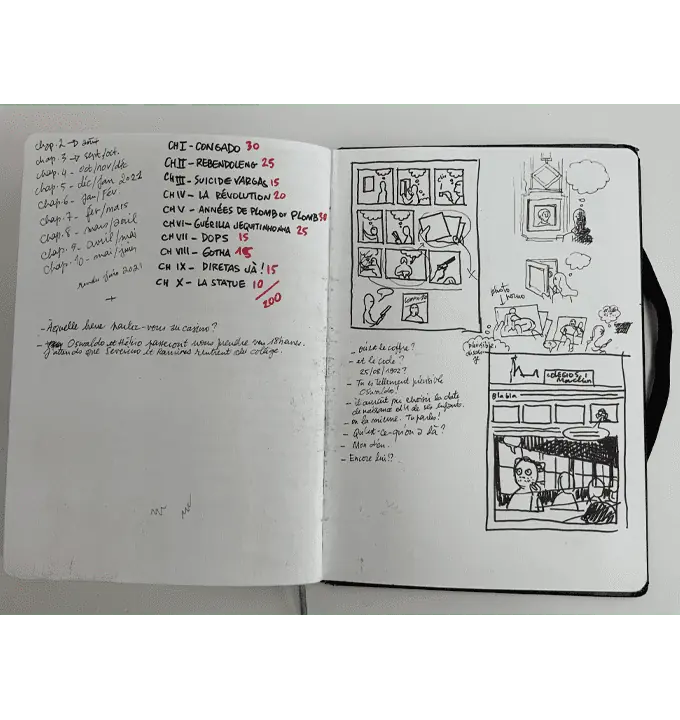 chap. 2 → août
chap. 3 → sept/oct.
chap. 4 - oct/nov/déc
chap. 5 - déc/jan 2021
chap. 6 - jan/Fév.
chap. 7 - fev/mars
chap. 8 - mars/avril
chap. 9 - avril/mai
chap. 10 - mai/juin
juin 2021
+
CH I - CONGADO 30
CH II - REBENDOLENG 25
CH III - SUICIDE VARGAS 15
CH IV - LA RÉVOLUTION 20
CH V - ANNÉES DE PLOMB OF PLOMB 30
CH VI - GUÉRILLA JEQUITINHONHA 25
CH VII - DOPS 15
CH VIII - GOTHA 15
CH IX - DIRETAS JÀ ! 15
CH X - LA STATUE 10
200
- À quelle heure partez-vous au casino ?
- Oswaldo et Hélio passeront nous prendre vers 18 heures.
J'attends que Severino et Ramires rentrent du collège.
- où est le coffre ?
- et le code ?
25/08/1902 ?
- Tu es tellement prévisible
Oswaldo !
- il aurait pu choisir la date
de naissance d'1 de ses enfants.
- ou la mienne. Tu parles !
- Qu'est-ce-qu'on a là ?
- Mon dieu.
- Encore lui !?
photo
↓ porno
COLEGIOS
Bla bla